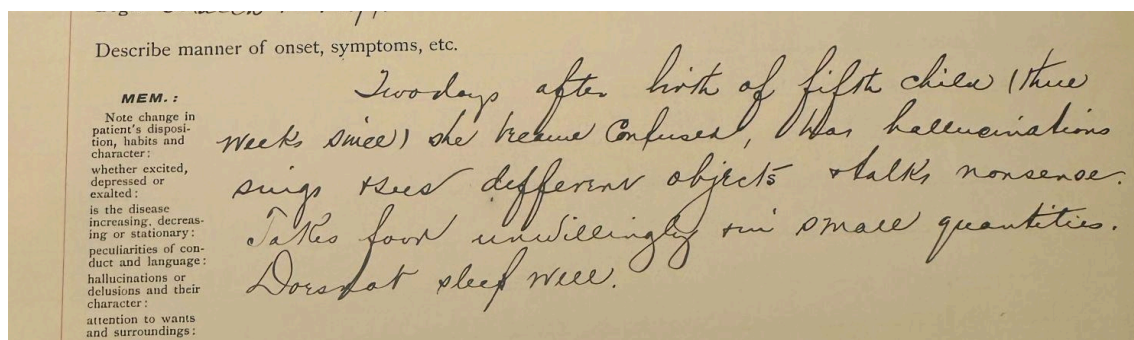 Describe manner of onset, symptoms, etc.
MEM. :
Note change in
patient's disposi-
tion, habits and
character:
whether excited,
depressed or
exalted:
is the disease
increasing, decreas-
ing or stationary:
peculiarities of con-
duct and language:
hallucinations or
delusions and their
character:
attention to wants
and surroundings:
Two days after birth of fifth child (three
weeks since) she became Confused, has hallucinations
sings & sees different objects & talks nonsense.
Takes food unwillingly & in small quantities.
Does not sleep well.